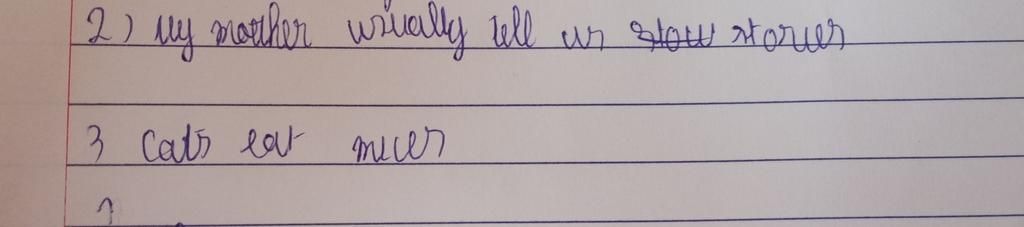 2) My mother usually tell us stories
3 Cats eat mices